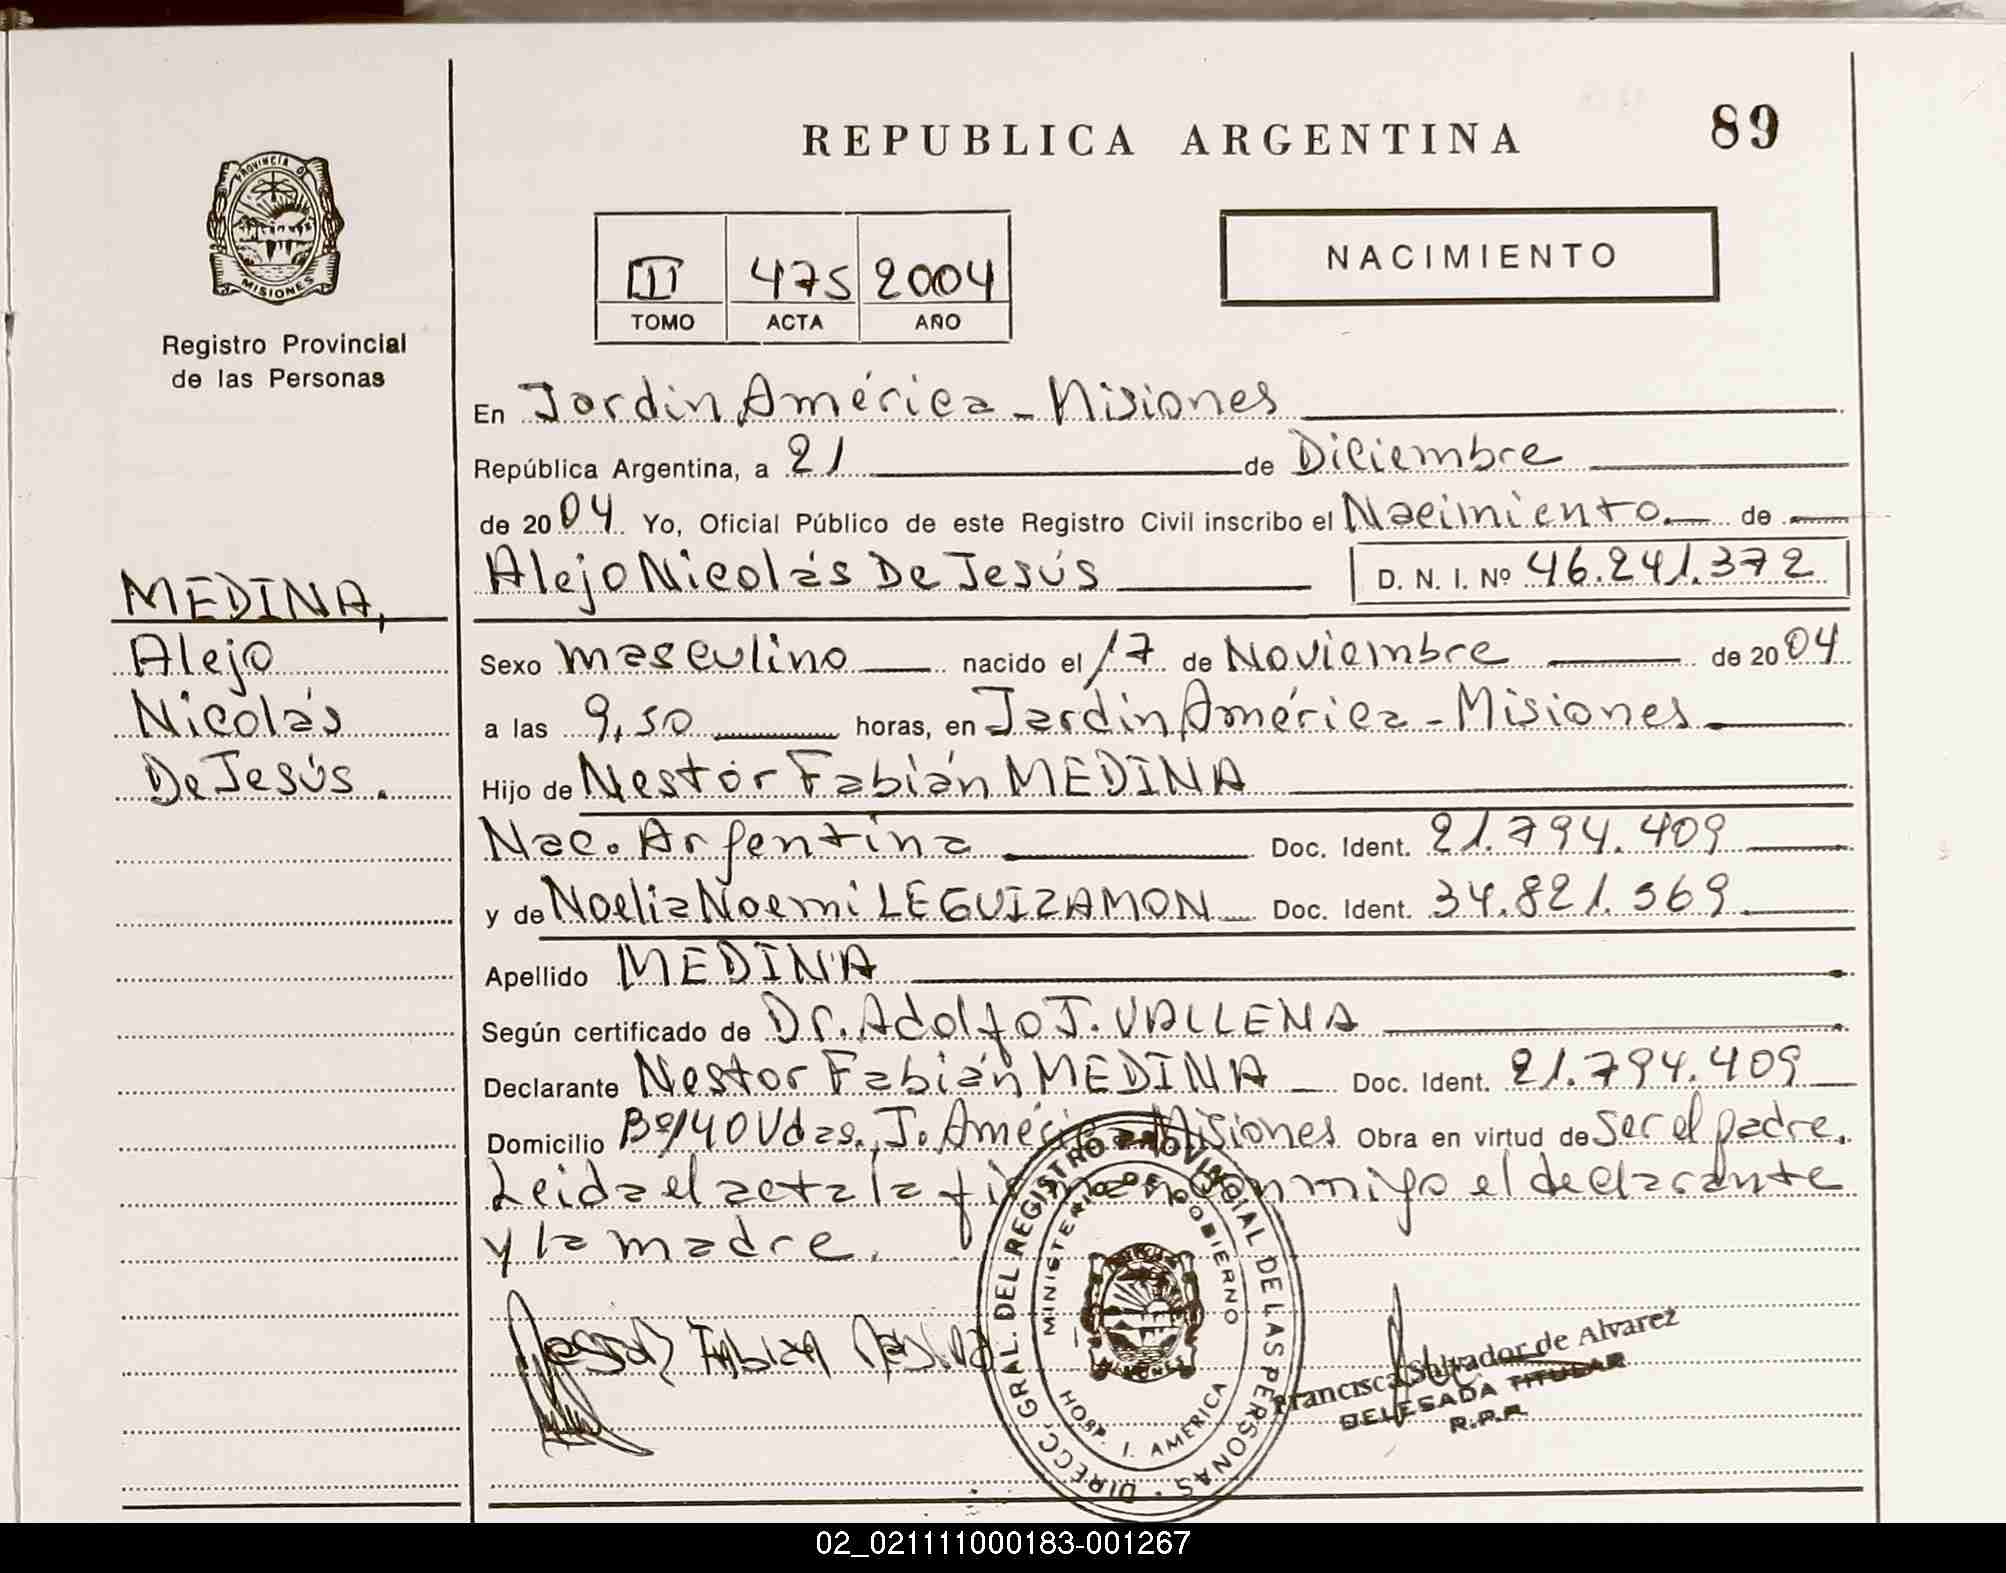 REPUBLICA ARGENTINA
89
PROVINCIA DE
MISIONES
Registro Provincial
de las Personas
II 475 2004
TOMO ACTA AÑO
NACIMIENTO
En Jardin América - Misiones
República Argentina, a 21 de Diciembre
de 2004 Yo, Oficial Público de este Registro Civil inscribo el Nacimiento de
Alejo Nicolás De Jesús D. N. I. Nº 46.241.372
MEDINA,
Alejo
Nicolás
De Jesús.
Sexo masculino nacido el 17 de Noviembre de 2004
a las 9,50 horas, en Jardin América - Misiones
Hijo de Nestór Fabián MEDINA
Nac. Argentina Doc. Ident. 21.794.409
y de Noelia Noemi LEGUIZAMON Doc. Ident. 34.821.369
Apellido MEDINA
Según certificado de Dr. Adolfo J. VALLENA
Declarante Nestor Fabián MEDINA Doc. Ident. 21.794.409
Domicilio Bº 140 Vdas. J. América Misiones Obra en virtud de ser el padre.
Leida el acta la firman conmigo el declarante
y la madre.
Nestor Fabian Medina
DIRECC. GRAL. DEL REGISTRO PROVINCIAL DE LAS PERSONAS
MINISTERIO DE GOBIERNO
MISIONES
HOSP. J. AMERICA
Francisca Salvador de Alvarez
DELEGADA TITULAR
R.P.P.
02_021111000183-001267